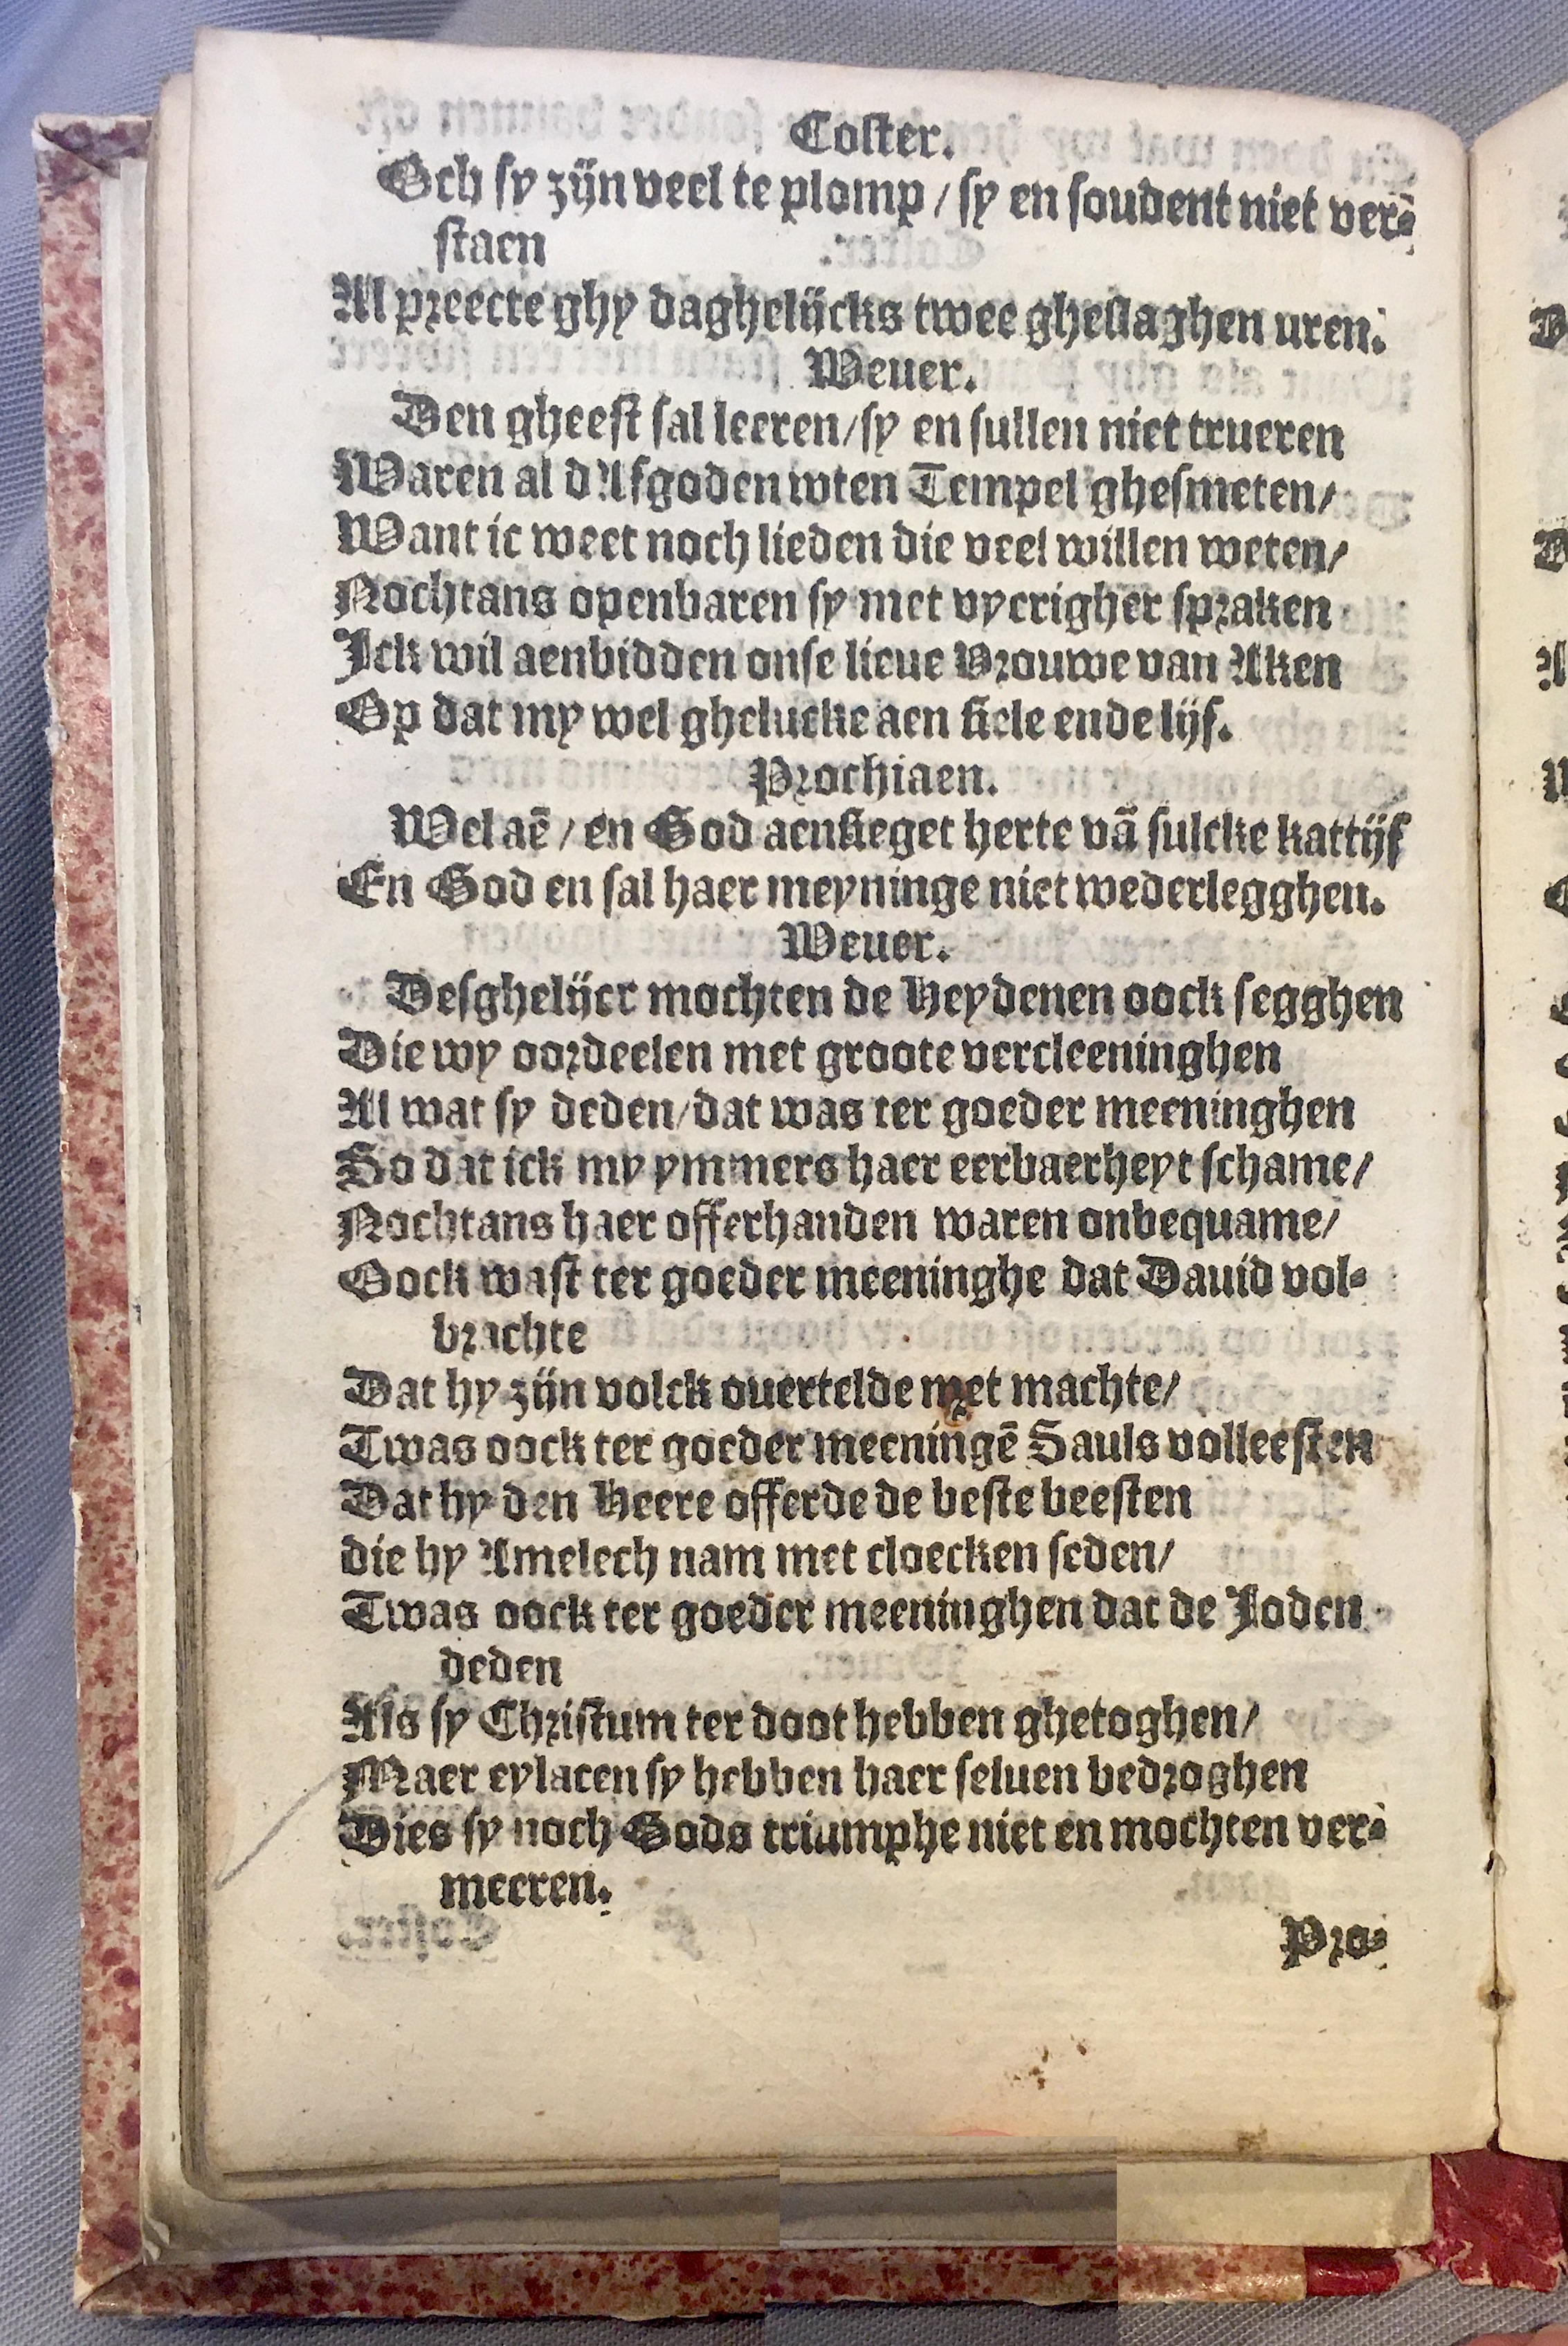 Coster.
Och sy zijn veel te plomp / sy en soudent niet ver-
staen
Al preecte ghy daghelijcks twee gheslaghen uren.
Weuer.
Den gheest sal leeren / sy en sullen niet trueren
Waren al d'Afgoden wten Tempel ghesmeten /
Want ic weet noch lieden die veel willen weten /
Nochtans openbaren sy met vyerigher spraken
Ick wil aenbidden onse lieue Vrouwe van Aken
Op dat my wel ghelucke aen siele ende lijf.
Prochiaen.
Wel aē / en God aensieget herte vā sulcke kattijf
En God en sal haer meyninge niet wederlegghen.
Weuer.
Desghelijcr mochten de Heydenen oock segghen
Die wy oordeelen met groote vercleeninghen
Al wat sy deden / dat was ter goeder meeninghen
So dat ick my ymmers haer eerbaerheyt schame /
Nochtans haer offerhanden waren onbequame /
Oock wast ter goeder meeninghe dat Dauid vol-
brachte
Dat hy zijn volck ouertelde met machte /
Twas oock ter goeder meeningē Sauls volleesten
Dat hy den Heere offerde de beste beesten
die hy Amelech nam met cloecken seden /
Twas oock ter goeder meeninghen dat de Joden
deden
Als sy Christum ter doot hebben ghetoghen /
Maer eylacen sy hebben haer seluen bedroghen
Dies sy noch Gods triumphe niet en mochten ver-
meeren.
Pro-